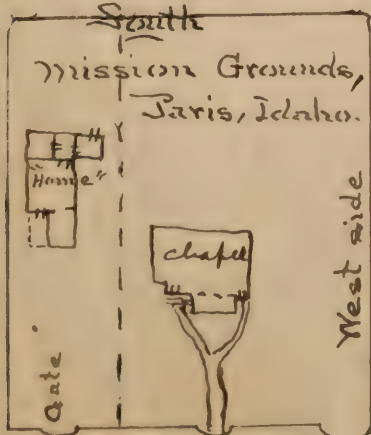 South
mission Grounds,
Paris, Idaho.
"Home"
Chapel
West side
Gate